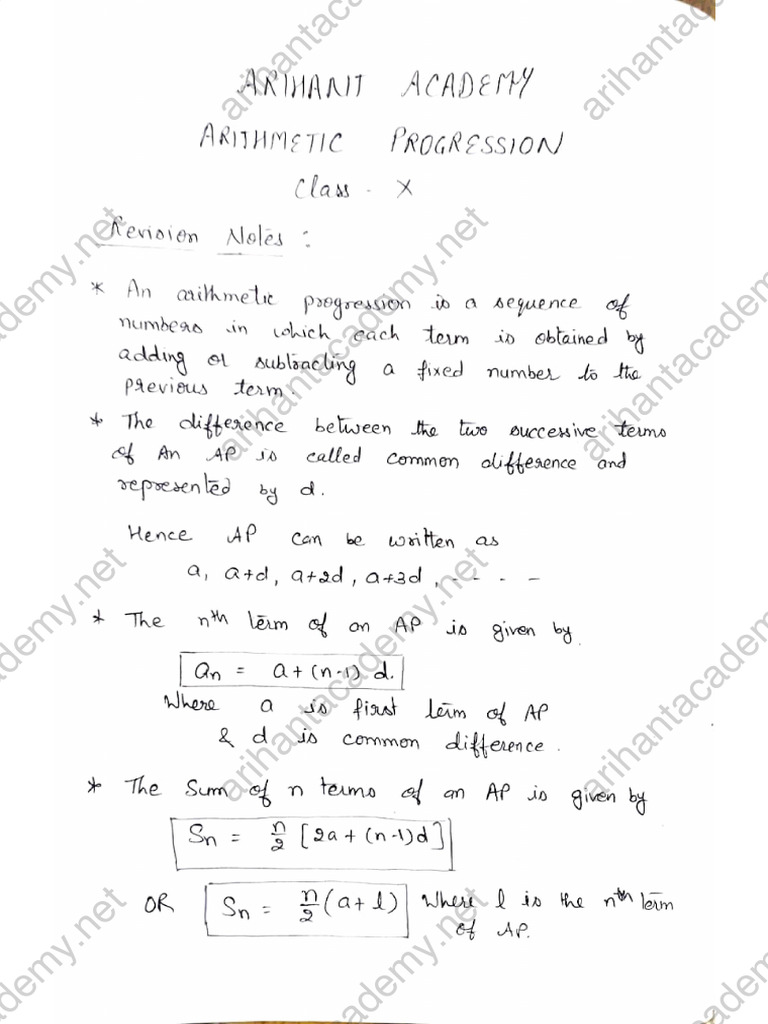 ARIHANT ACADEMY
ARITHMETIC PROGRESSION
Class - X
Revision Notes :
* An arithmetic progression is a sequence of
numbers in which each term is obtained by
adding or subtracting a fixed number to the
previous term.
* The difference between the two successive terms
of An AP is called common difference and
represented by d.
Hence AP can be written as
a, a+d, a+2d, a+3d, - - - -
* The nth term of an AP is given by
an = a + (n-1) d.
Where a is first term of AP
& d is common difference.
* The Sum of n terms of an AP is given by
Sn = n/2 [2a + (n-1)d]
OR Sn = n/2 (a + l) Where l is the nth term
of AP.
arihantacademy.net